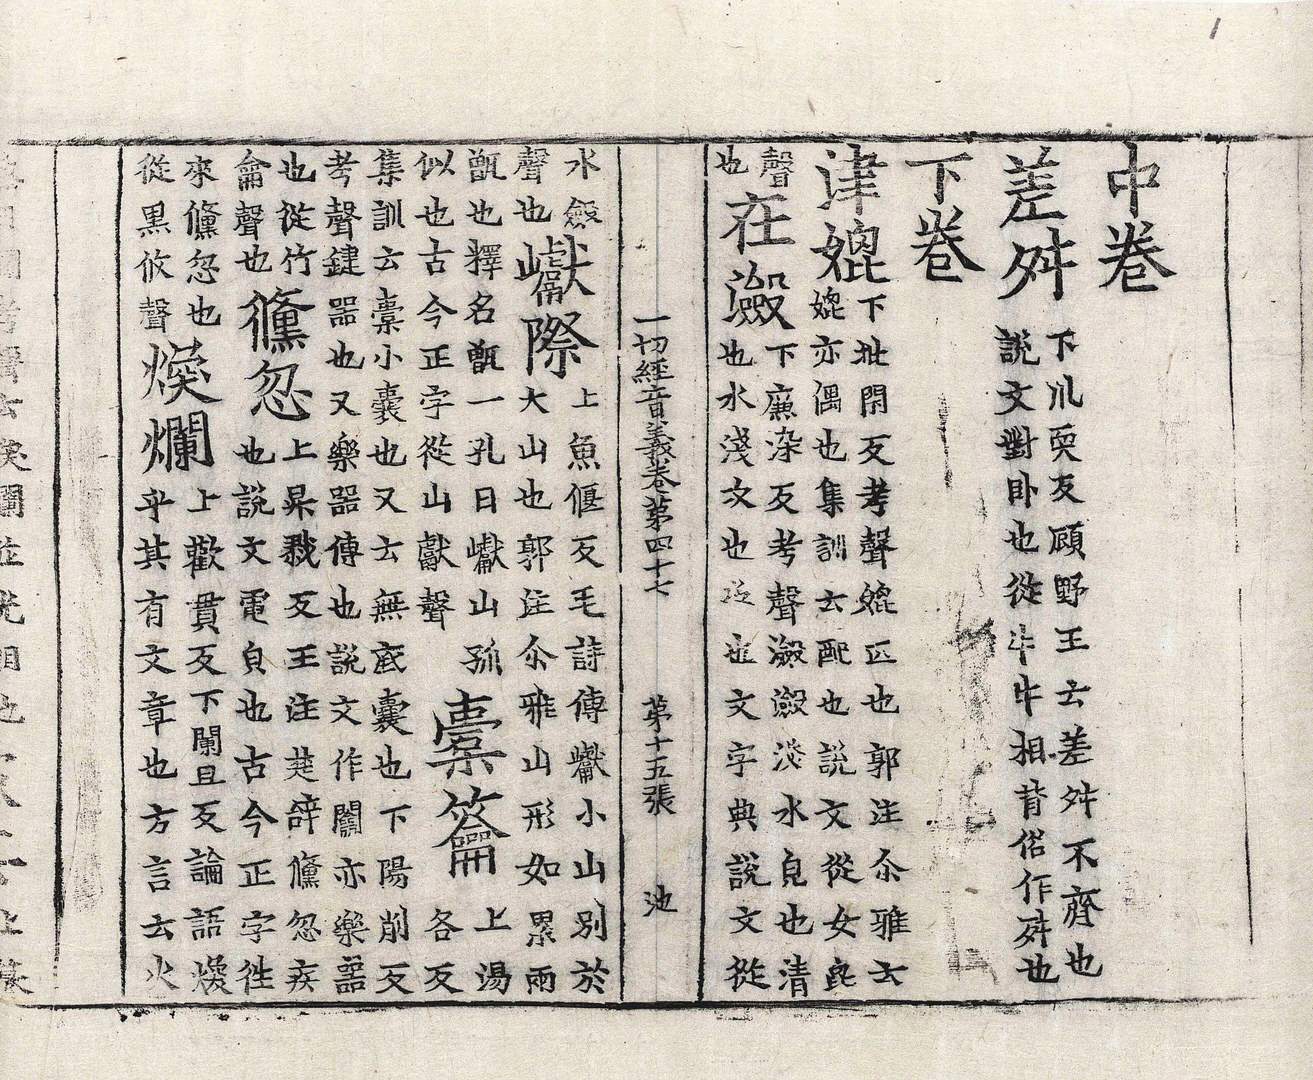 中卷
差舛
下川耎反顧野王云差舛不齊也
說文對卧也從㐄㐄相背俗作舛也
下卷
津媲
下批閇反考聲媲匹也郭注尒雅云
媲亦偶也集訓云配也說文從女毘
聲
也
在澰
下廉染反考聲澰澰淺水皃也清
也水淺次也也文字典說文從
一切經音義卷第四十七 第十五張 池
水斂
聲也
巘際
上魚偃反毛詩傳巘小山別於
大山也郭注尒雅山形如累兩
甑也釋名甑一孔曰巘山孤
似也古今正字從山獻聲
橐籥
上湯
各反
集訓云橐小囊也又云無底囊也下陽削反
考聲鍵器也又樂器傳也說文作亦樂器
也從竹
龠聲也
儵忽
上昇戮反王注楚辝儵忽疾
也說文電皃也古今正字往
來儵忽也
從黑攸聲
煥爛
上歡貫反下闌旦反論語煥
乎其有文章也方言云火